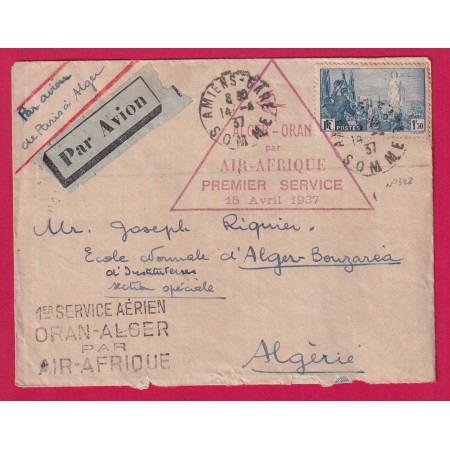 Par avion
de Paris à Alger
Par Avion
AMIENS-GARE
8 30
14 -4
37
SOMME
ALGER-ORAN
par
AIR-AFRIQUE
PREMIER SERVICE
15 Avril 1937
RF POSTES 1,50
14 -4
37
SOMME
Mr. Joseph Riquier
Ecole Normale d'Alger-Bouzaréa
d'Instituteurs
section spéciale
Algérie
1ER SERVICE AÉRIEN
ORAN-ALGER
PAR
AIR-AFRIQUE